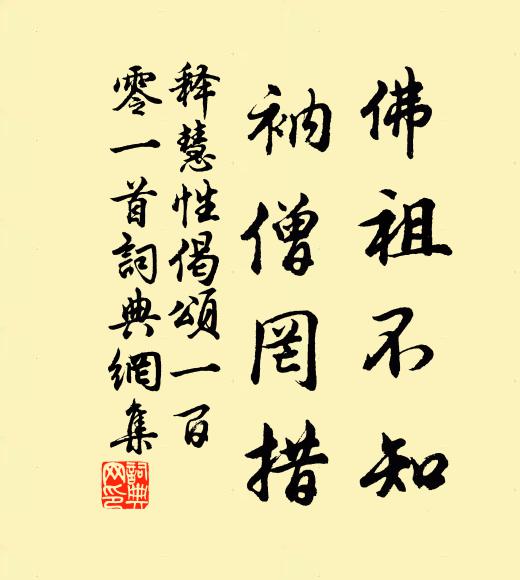 佛祖不知
衲僧罔措
释慧性偈頌一百
零一首詞典網集
詞典网印